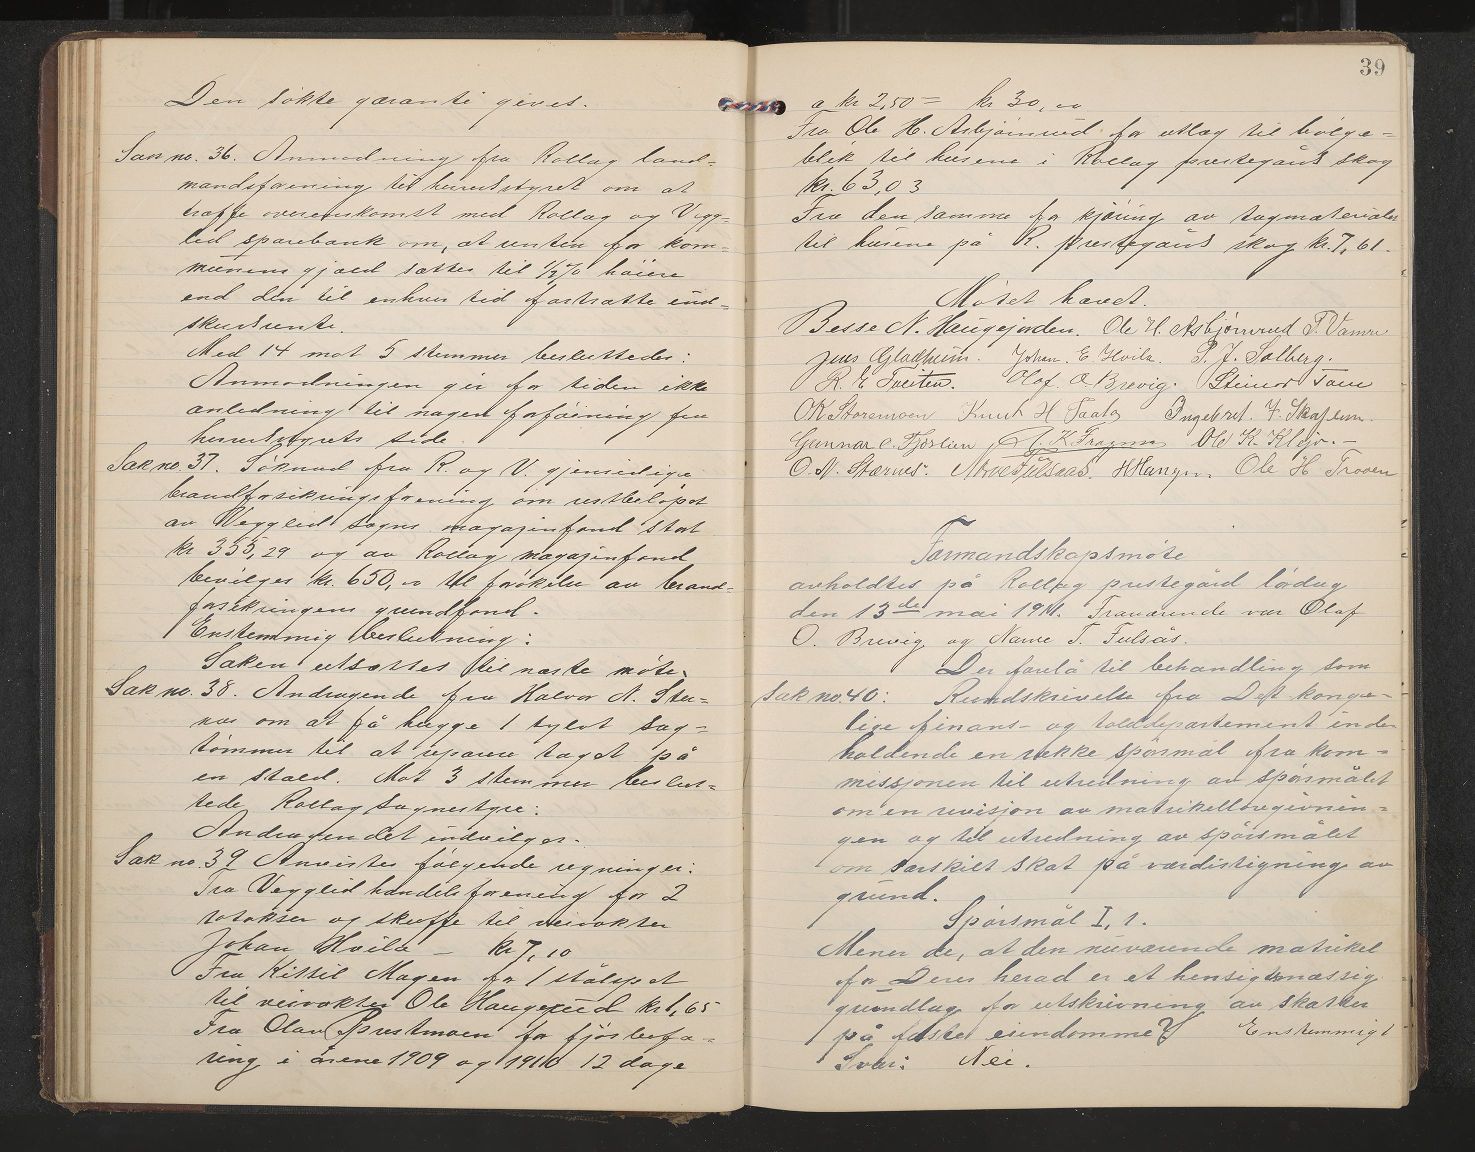 Den søkte garanti gives.
Sak no. 36. Anmodning fra Rollag land-
mandsforening til herredsstyret om at
træffe overenskomst med Rollag og Vegg-
lid sparebank om, at renten for kom-
munens gjæld sættes til 1/2 % høiere
end den til enhver tid fastsatte ind-
skudsrente.
Med 14 mot 5 stemmer besluttedes:
Anmodningen gir for tiden ikke
anledning til nogen forføining fra
herredsstyrets side.
Sak no. 37. Søknad fra R. og V. gjensidige
brandforsikringsforening om restbeløpet
av Vegglid sogns magazinfond stort
kr 355,29 og av Rollag magazinfond
bevilges kr. 650,00 til forøkelse av brand-
forsikringens grundfond.
Enstemmig beslutning:
Saken utsættes til næste møte.
Sak no. 38. Andragende fra Halvor N. Stær-
nes om at få hugge 1 tylvt sag-
tømmer til at reparere taget på
en stald. Mot 3 stemmer beslut-
tede Rollag sognestyre:
Andragendet indvilges.
Sak no. 39 Anvistes følgende regninger:
Fra Vegglid handelsforening for 2
rotøkser og skuffe til veivokter
Johan Hvila — kr 7,10
Fra Kittil Magen for 1 stålspet
til veivokter Ole Haugerud kr 1,65
Fra Olav Prestmoen for fjøsbefa-
ring i årene 1909 og 1910 12 dage
39
a kr 2,50 = kr 30,00
Fra Ole H. Asbjørnrud for utlæg til bølge-
blik til husene i Rollag prestegårds skog
kr. 63,03
Fra den samme for kjøring av tagmaterialer
til husene på R. prestegårds skog kr. 7,61.
Møtet hævet.
Besse N. Haugejorden. Ole H. Asbjørnrud T. Vamre
Jens Gladheim. Johan E. Hvila. P. J. Solberg.
R. E. Tveiten. Olof O. Brevig. Steinar Toen
OK Storemoen Knut H Taato Ingebret. F. Skajem.
Gunnar O. Fjøslien K. Traaen Ole K. Klejo.-
O. N. Stærnes. Narve Fulsaas. H Haugen. Ole H Traaen
Formandskapsmøte
avholdtes på Rollag prestegård lørdag
den 13de mai 1911. Fraværende var Olaf
O. Brevig og Narve T. Fulsås.
Der forelå til behandling som
Sak no 40: Rundskrivelse fra Det konge-
lige finans- og tolddepartement inde-
holdende en række spørsmål fra kom-
missjonen til utredning av spørsmålet
om en revisjon av matrikellovgivnin-
gen og til utredning av spørsmålet
om særskilt skat på værdistigning av
grund.
Spørsmål I, 1.
Mener de, at den nuværende matrikel
for Deres herad er et hensigtsmæssig
grundlag for utskrivning av skatter
på faste eiendomme? Enstemmigt
Svar: Nei.